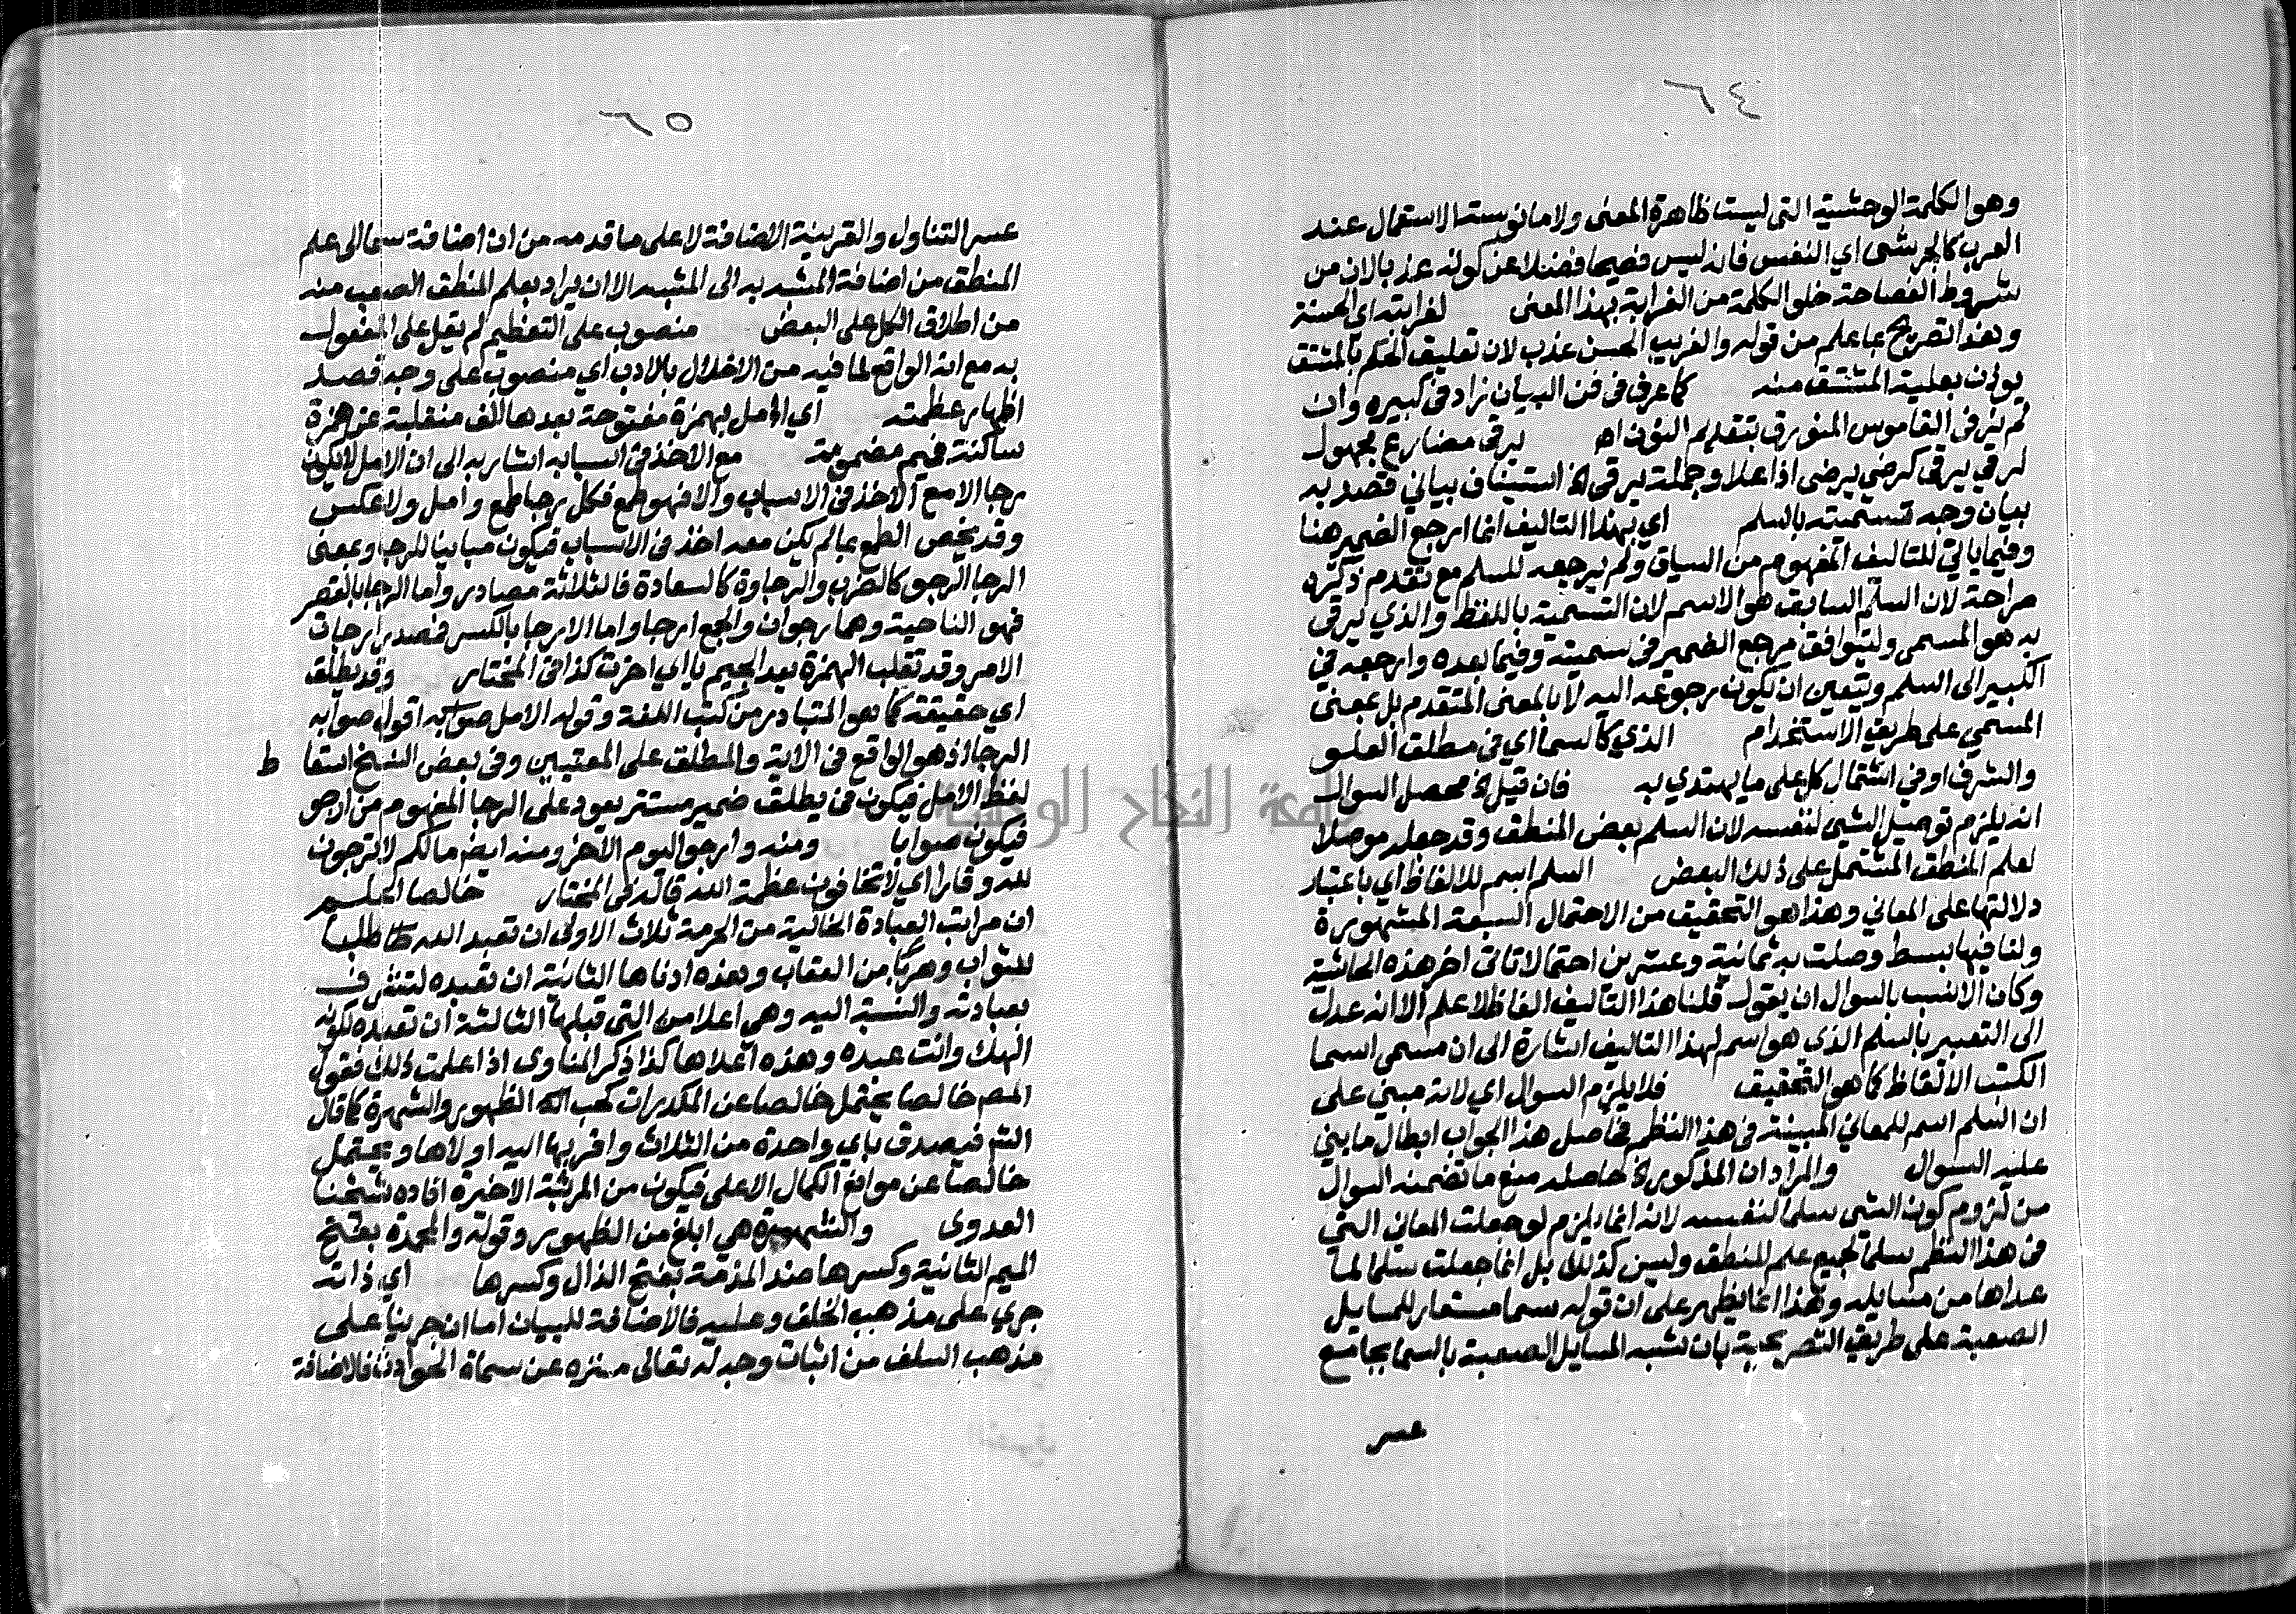 ٦٤
وهو الكلمة الوحشية التي ليست ظاهرة المعنى ولا مانوسة الاستعمال عند
العرب كالجرشى اي النفس فانه ليس فصيحا فضلا عن كونه عذبا لان من
شروط الفصاحة خلو الكلمة من الغرابة بهذا المعنى لغرابته اي الحسنة
وهذا تصريح بما علم من قوله والغريب الحسن عذب لان تعليق الحكم بالمشتق
يوذن بعلية المشتق منه كما عرف في فن البيان زاد في كبيره وان
لم نر في القاموس المنورق بتقديم النون اه يرقى مضارع مجهول
لرقي يرقى كرضي يرضى اذا علا وجملة يرقى الخ استيناف بياني قصد به
بيان وجه تسميته بالسلم اي بهذا التاليف انما ارجع الضمير هنا
وفيما ياتي للتاليف المفهوم من السياق ولم يرجعه للسلم مع تقدم ذكره
صراحة لان السلم السابق هو الاسم لان التسمية باللفظ والذي يرقى
به هو المسمى وليتوافق مرجع الضمير في سميته وفيما بعده وارجعه في
الكبير الى السلم ويتعين ان يكون رجوعه اليه لا بالمعنى المتقدم بل بمعنى
المسمى على طريق الاستخدام الذي كالسما اي في مطلق العلو
والشرف او في اشتمال كل على ما يهتدي به فان قيل الخ محصل السوال
انه يلزم توصيل الشي لنفسه لان السلم بعض المنطق وقد جعله موصلا
لعلم المنطق المشتمل على ذلك البعض السلم اسم للالفاظ اي باعتبار
دلالتها على المعاني وهذا هو التحقيق من الاحتمال السبعة المشهورة
ولنا فيها بسط وصلت به ثمانية وعشرين احتمالا تاتى اخر هذه الحاشية
وكان الانسب بالسوال ان يقول قلنا هذا التاليف الفاظ لا علم الا انه عدل
الى التعبير بالسلم الذي هو اسم لهذا التاليف اشارة الى ان مسمى اسما
الكتب الالفاظ كما هو التحقيق فلا يلزم السوال اي لانه مبني على
ان السلم اسم للمعاني المبينة في هذا النظم فحاصل هذا الجواب ابطال ما بني
عليه السوال والمراد ان المذكور الخ حاصله منع ما تضمنه السوال
من لزوم كون الشي سلما لنفسه لانه انما يلزم لو جعلت المعاني التي
في هذا النظم سلما لجميع علم المنطق وليس كذلك بل انما جعلت سلما لما
عداها من مسايله وهذا انما يظهر على ان قوله سما مستعار للمسايل
الصعبة على طريق التصريحية بان تشبه المسايل الصعبة بالسما بجامع
عسر
٦٥
عسر التناول والقرينة الاضافة لا على ما قدمه من ان اضافة سما الى علم
المنطق من اضافة المشبه به الى المشبه الا ان يراد بعلم المنطق الصعب منه
من اطلاق الكل على البعض منصوب على التعظيم لم يقل على المفعول
به مع انه الواقع لما فيه من الاخلال بالادب اي منصوب على وجه قصد
اظهار عظمته اي الامل بهمزة مفتوحة بعدها الف منقلبة عن همزة
ساكنة فميم مضمومة مع الاخذ في اسبابه اشار به الى ان الامل لا يكون
رجا الا مع الاخذ في الاسباب والا فهو طمع فكل رجا طمع وامل ولا عكس
وقد يخص الطمع بما لم يكن معه اخذ في الاسباب فيكون مباينا للرجا وبمعنى
الرجا الرجو كالضرب والرجاوة كالسعادة فالثلاثة مصادر واما الرجا بالقصر
فهو الناحية وهما رجوان والجمع ارجا واما الارجا بالكسر فمصدر ارجات
الامر وقد تقلب الهمزة بعد الجيم يا اي اخرت كذا في المختار وقد يطلق
اي حقيقة كما هو المتبادر من كتب اللغة وقوله الامل صوابه اقول صوابه
الرجا اذ هو الواقع في الاية والمطلق على المعتبين وفي بعض النسخ اسقا ط
لفظ الامل فيكون في يطلق ضمير مستتر يعود على الرجا المفهوم من ارجو
فيكون صوابا ومنه وارجو اليوم الاخر ومنه ايضا ما لكم لا ترجون
لله وقارا اي لا تخافون عظمة الله قاله في المختار خالصا اعلم
ان مراتب العبادة الخالية من الحرمة ثلاث الاولى ان تعبد الله طالبا
للثواب وهربا من العقاب وهذه ادناها الثانية ان تعبده لتتشرف
بعبادته والنسبة اليه وهي اعلا من التي قبلها الثالثة ان تعبده لكونه
الهك وانت عبده وهذه اعلاها كذا ذكر المناوى اذا علمت ذلك فقول
المص خالصا يحتمل خالصا عن المكدرات كحب الظهور والشهرة كما قال
الش فيصدق باي واحدة من الثلاث واقربها اليه اولاها ويحتمل
خالصا عن موانع الكمال الاعلى فيكون من المرتبة الاخيرة افاده شيخنا
العدوى والشهرة هي ابلغ من الظهور وقوله والمحمدة بفتح
الميم الثانية وكسرها ضد المذمة بفتح الذال وكسرها اي ذاته
جري على مذهب الخلف وعليه فالاضافة للبيان اما ان جرينا على
مذهب السلف من اثبات وجه له تعالى منزه عن سماة الحوادث فالاضافة
جامعة النجاح الوطنية